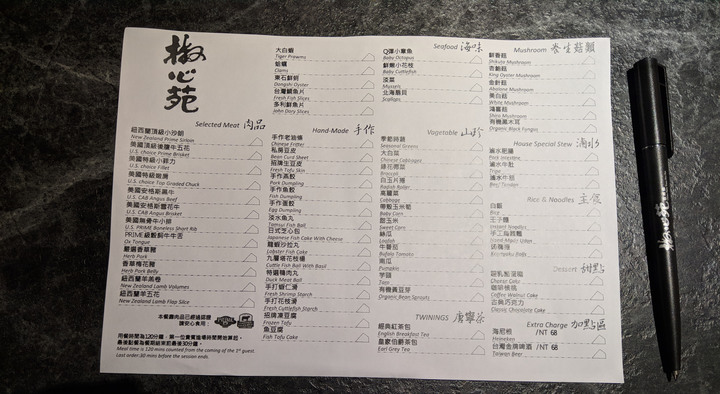 椒心苑
Selected Meat 肉品
紐西蘭頂級小沙朗
New Zealand Prime Sirloin
美國頂級後腰牛五花
U.S. choice Prime Brisket
美國特級小菲力
U.S. choice Fillet
美國特級翼板
U.S. choice Top Graded Chuck
美國安格斯黑牛
U.S. CAB Angus Beef
美國安格斯雪花牛
U.S. CAB Angus Brisket
美國無骨牛小排
U.S. PRIME Boneless Short Rib
PRIME級
Ox Tongue
嚴選香草豬
Herb Pork
香草梅花豬
Herb Pork Belly
紐西蘭羊羔卷
New Zealand Lamb Volumes
紐西蘭羊五花
New Zealand Lamb Flap Slice
大白蝦
Tiger Prawns
蛤蠣
Clams
東石鮮蚵
Dongshi Oyster
台灣鯛魚片
Fresh Fish Slices
多利鮮魚片
John Dory Slices
Hand-Made 手作
手作老油條
Chinese Fritter
私房豆皮
Bean Curd Sheet
招牌生豆皮
Fresh Tofu Skin
手作燕餃
Pork Dumpling
手作魚餃
Fish Dumpling
手作蛋餃
Egg Dumpling
淡水魚丸
Tamsui Fish Ball
日式芝心包
Japanese Fish Cake With Cheese
龍蝦沙拉丸
Lobster Fish Cake
九層塔花枝塔
Cuttle Fish Ball With Basil
特選鴨肉丸
Duck Meat Ball
手打蝦仁滑
Fresh Shrimp Starch
手打花枝滑
Fresh Cuttlefish Starch
招牌凍豆腐
Frozen Tofu
魚豆腐
Fish Tofu Cake
Seafood 海味
Q彈小章魚
Baby Octopus
鮮嫩小花枝
Baby Cuttlefish
淡菜
Mussels
北海扇貝
Scallops
Vegetable 山珍
季節時蔬
Seasonal Greens
大白菜
Chinese Cabbages
綠花椰菜
Broccoli
白玉片捲
高麗菜
Cabbage
帶殼玉米筍
Baby Corn
甜玉米
Sweet Corn
絲瓜
Loofah
牛番茄
Bufalo Tomato
南瓜
Pumpkin
芋頭
Taro
有機黃豆芽
Organic Bean Sprouts
TWININGS 唐寧茶
經典紅茶包
English Breakfast Tea
皇家伯爵茶包
Earl Grey Tea
Mushroom 養生菇類
鮮香菇
Shitake Mushroom
杏鮑菇
King Oyster Mushroom
金針菇
Abalone Mushroom
美白菇
White Mushroom
鴻喜菇
Shoei Mushroom
有機黑木耳
Organic Black Fungus
House Special Stew 滷水
滷水肥腸
Pork Intestine
滷水牛肚
Tripe
滷水牛筋
Beef Tendon
Rice & Noodles 主食
白飯
Rice
王子麵
Instant Noodles
手工烏龍麵
Hand Made Udon
Dessert 甜點
咖啡核桃
Coffee Walnut Cake
古典巧克力
Classic Chocolate Cake
Extra Charge 加點區
海尼根 /NT 68
Heineken
台灣金牌啤酒 /NT 68
Taiwan Beer
本餐廳肉品已經過認證
請安心食用
用餐時間為120分鐘，第一位貴賓進場時間開始算起，
最後點餐為餐期結束前最後30分鐘。
Meal time is 120 mins counted from the coming of the 1st guest.
Last order:30 mins before the session end.
椒心苑